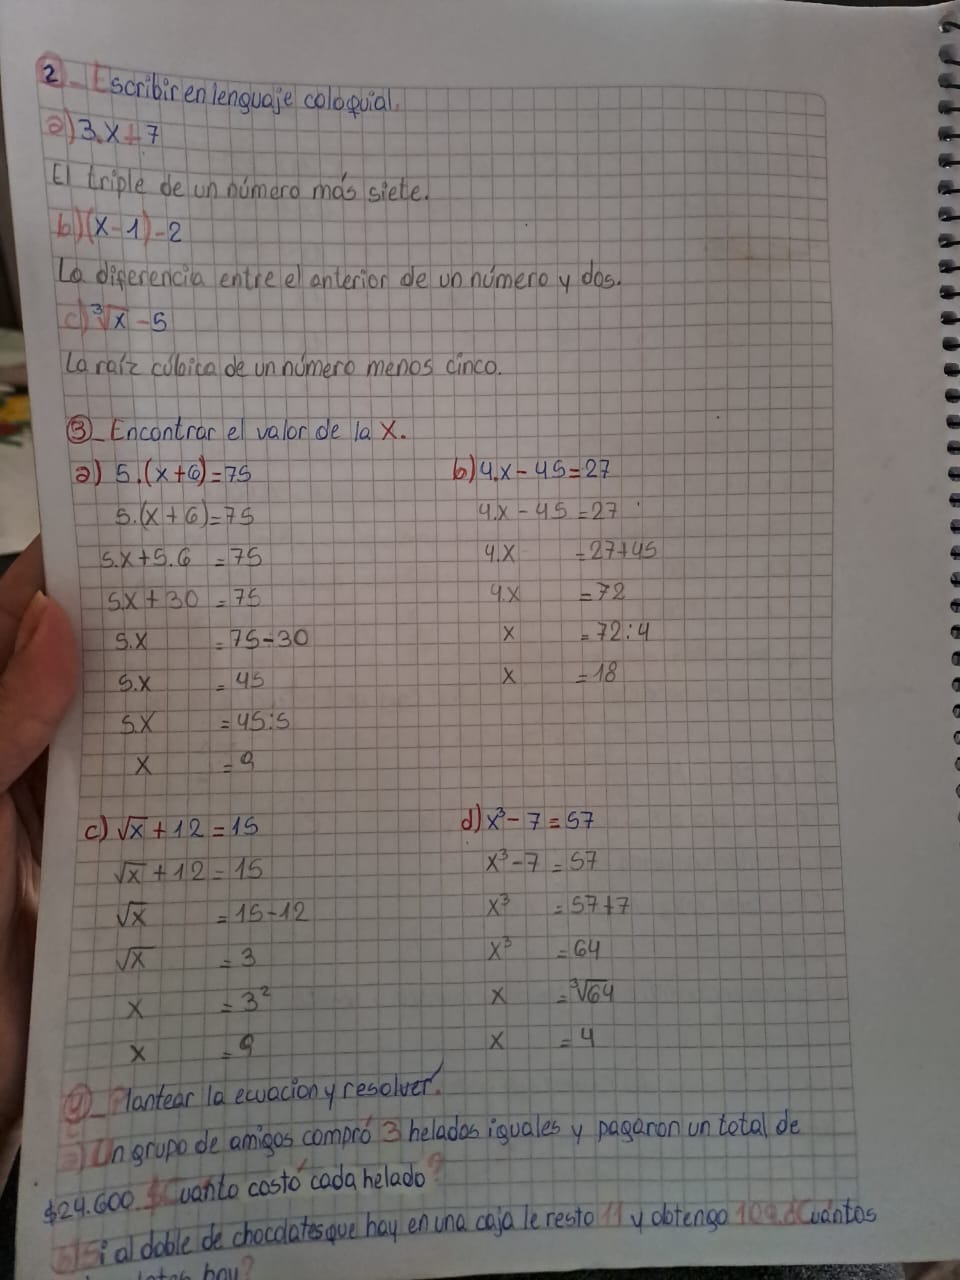 2_ Escribir en lenguaje coloquial.
a) 3.x+7
El triple de un número más siete.
b) (x-1)-2
La diferencia entre el anterior de un número y dos.
c) ∛x - 5
La raíz cúbica de un número menos cinco.
3_ Encontrar el valor de la x.
a) 5.(x+6)=75
5.(x+6)=75
5.x+5.6 =75
5.x+30 =75
5.x =75-30
5.x =45
5.x =45:5
x =9
b) 4.x-45=27
4.x-45=27
4.x =27+45
4.x =72
x =72:4
x =18
c) √x+12=15
√x+12=15
√x =15-12
√x =3
x =3²
x =9
d) x³-7=57
x³-7=57
x³ =57+7
x³ =64
x =∛64
x =4
4_ Plantear la ecuacion y resolver.
a) Un grupo de amigos compró 3 helados iguales y pagaron un total de
$24.600. ¿Cuánto costó cada helado?
b) Si al doble de chocolates que hay en una caja le resto 11 y obtengo 109. ¿Cuántos
hay?